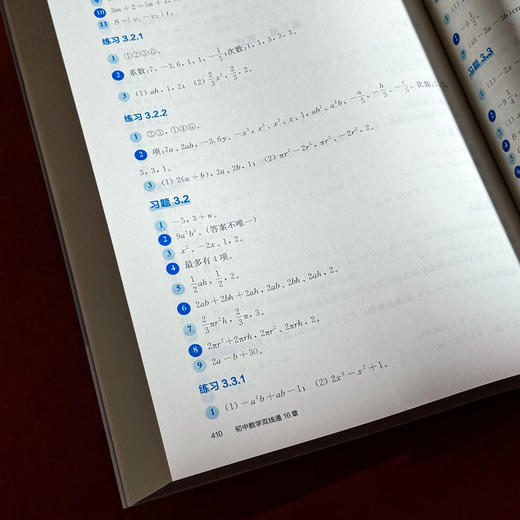 10 3m+2=5m+3
11 S=|v₁-v₂|t。
练习 3.2.1
1 ①②③⑥。
2 系数:7,-3,6,1,1,-1/5;次数:1,1,3,3,3。
3 (1) ah,1,2; (2) 2/3x²,2/3,2。
练习 3.2.2
1 ②③,①④⑥。
2 项:7a、2ab,-3、6y、-x³,x³、x²、x、1,ab²、a²b,-a/5、-b/5、-c/5,次数:
3,3,1。
3 (1) 2(a+b),2a、2b,1; (2) πr²-2r²,πr²、-2r²,2。
习题 3.2
1 -5,3+n。
2 9a²b³。(答案不唯一)
3 x²、-2x、1,2。
4 最多有4项。
5 1/2ah,1/2,2。
6 2ab+2bh+2ah,2ab、2bh、2ah,2。
7 2/3πr²h,2/3π,3。
8 2πr²+2πrh,2πr²、2πrh,2。
9 2a-b+30。
练习 3.3.1
1 (1) -a²b+ab-1; (2) 2x³-x²+1。
410 初中数学双线通 16 章
习题 3.3